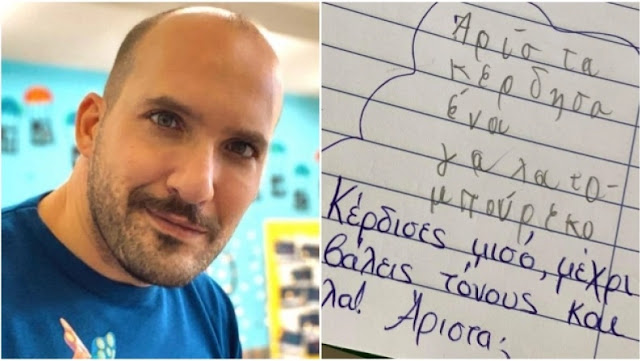 Άριστα
κέρδησα
ένα
γαλατο-
μπούρεκο
Κέρδισες μισό, μέχρι
βάλεις τόνους και
λα! Άριστα;